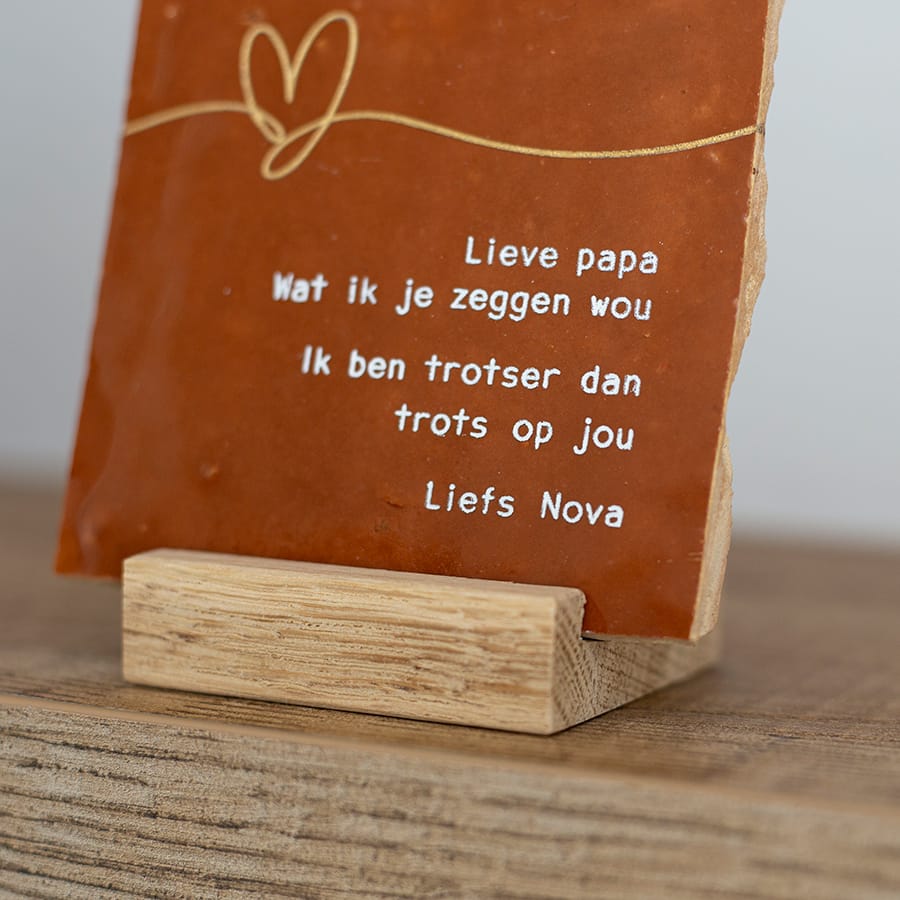 Lieve papa
Wat ik je zeggen wou
Ik ben trotser dan
trots op jou
Liefs Nova